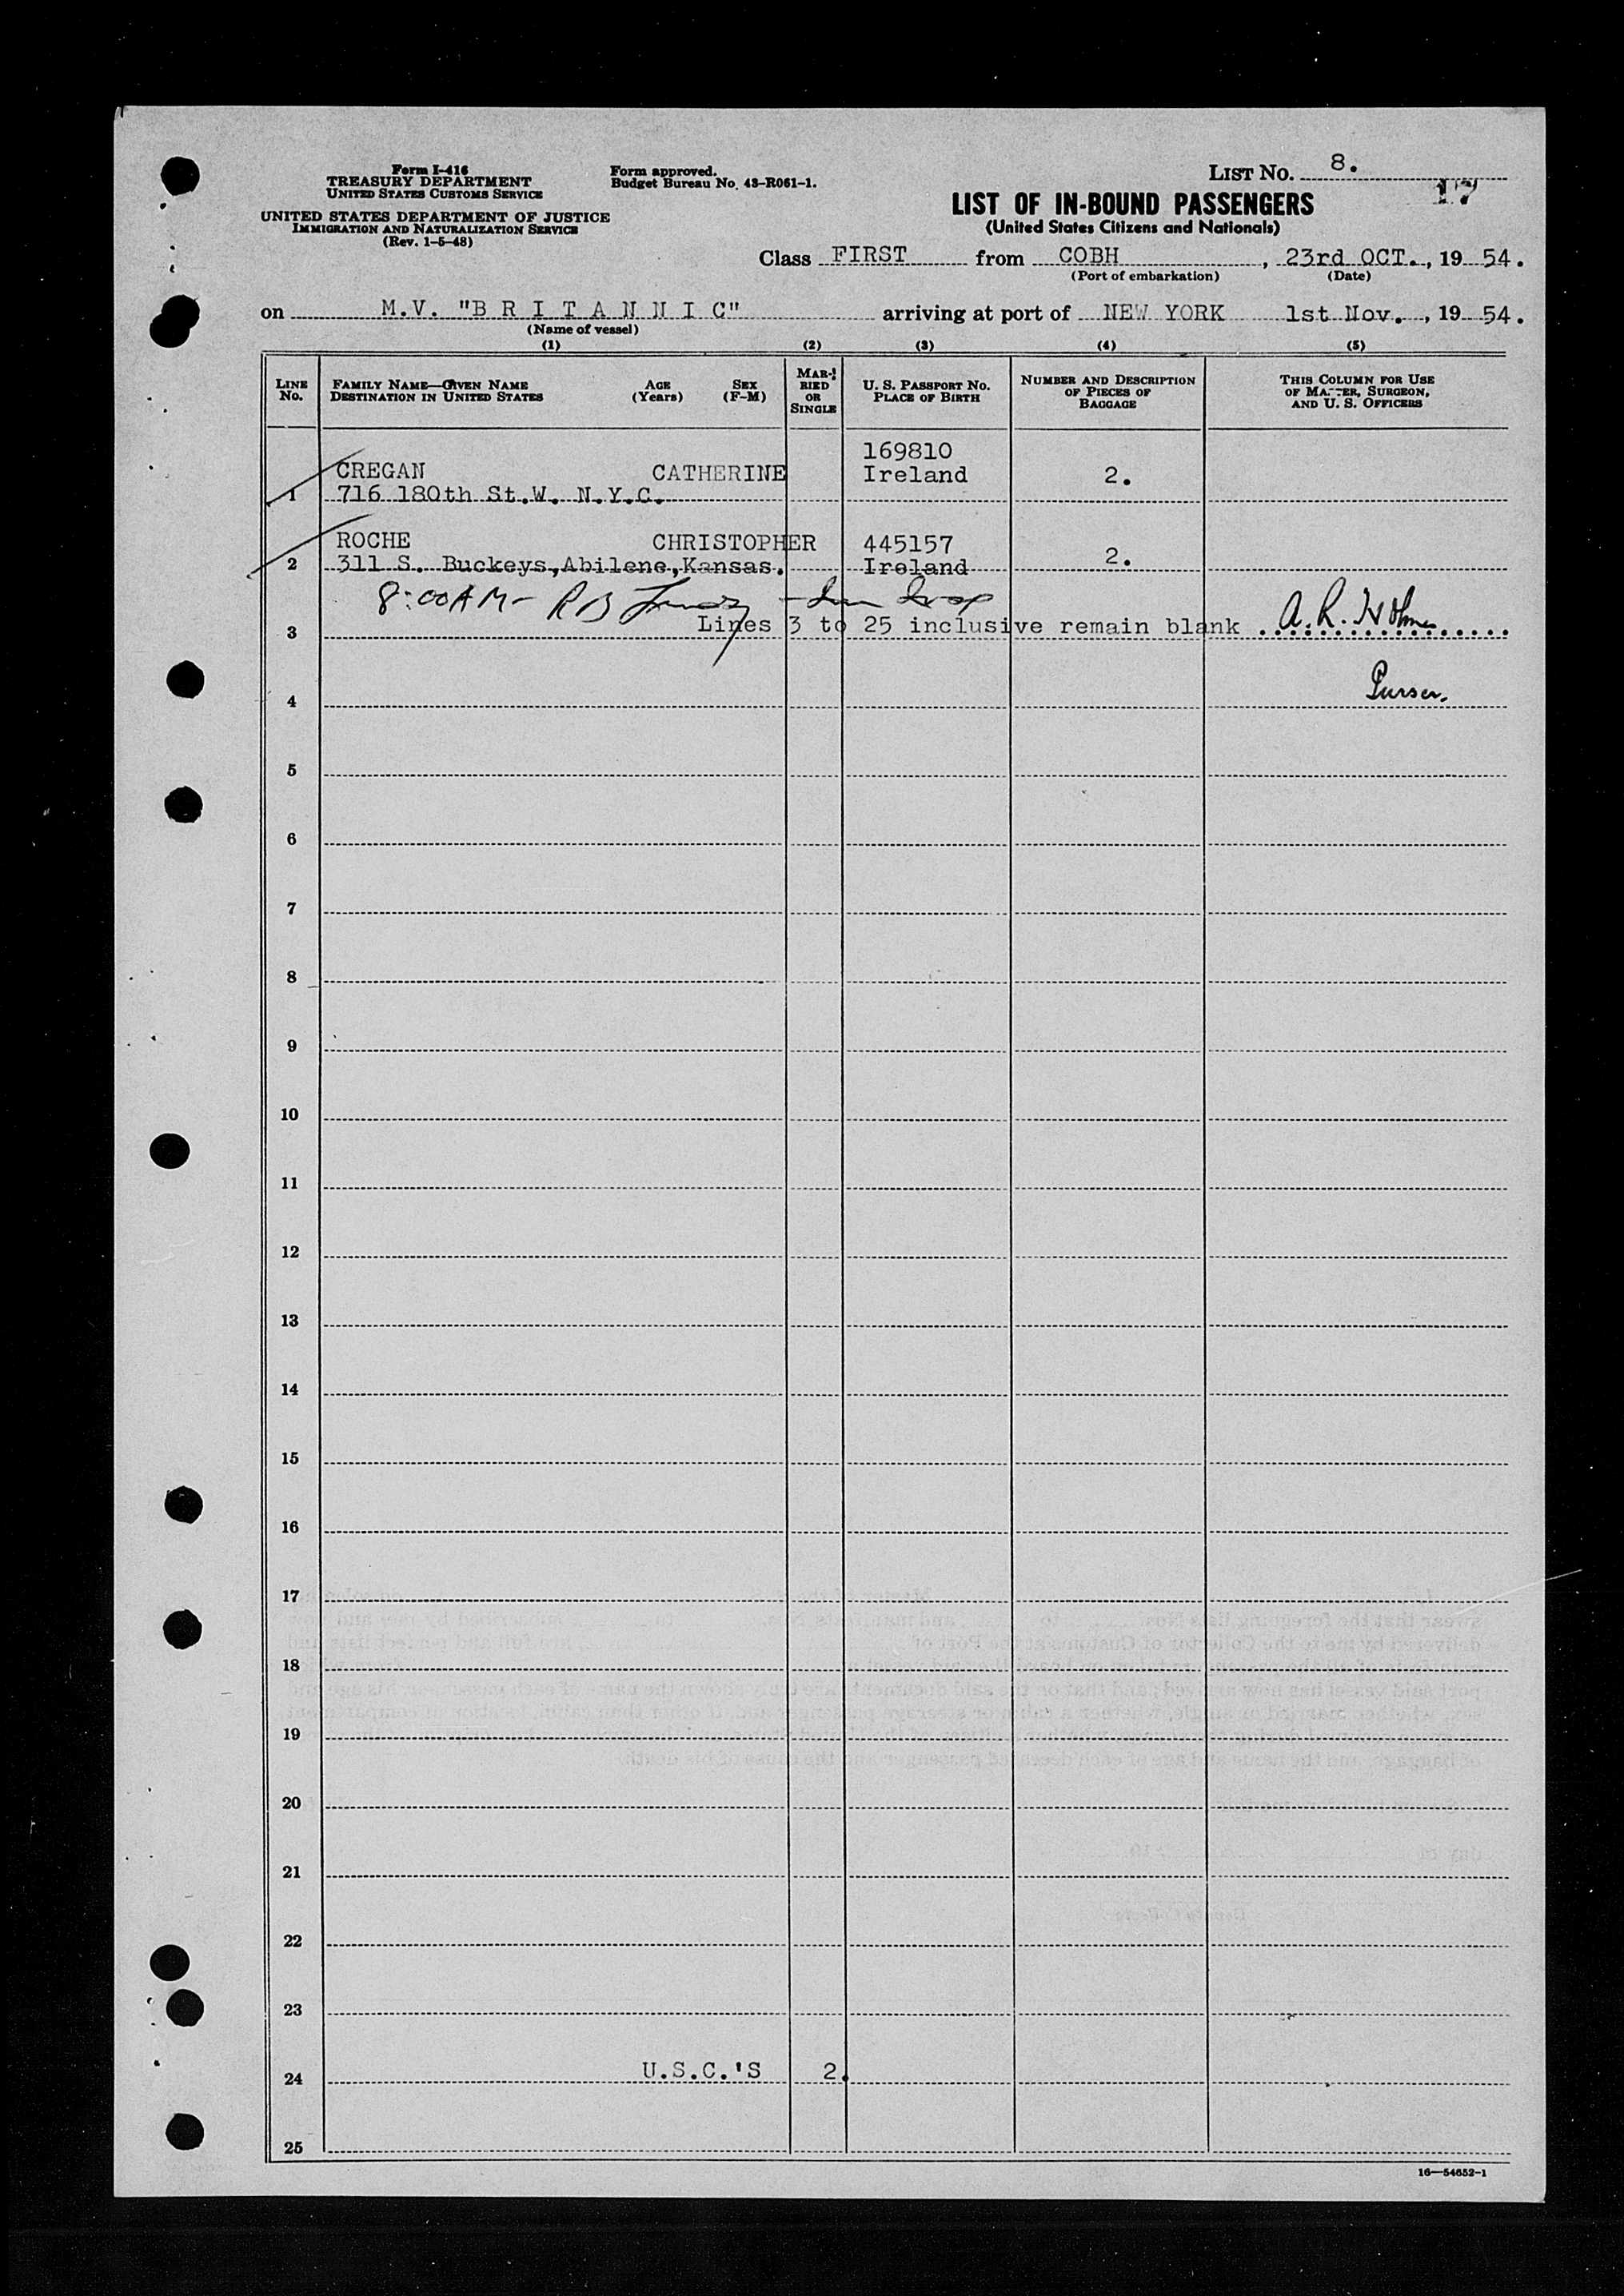 Form I-416
TREASURY DEPARTMENT
UNITED STATES CUSTOMS SERVICE
UNITED STATES DEPARTMENT OF JUSTICE
IMMIGRATION AND NATURALIZATION SERVICE
(Rev. 1-5-48)
Form approved.
Budget Bureau No. 43-R061-1.
LIST No. 8.
17
LIST OF IN-BOUND PASSENGERS
(United States Citizens and Nationals)
Class FIRST from COBH, 23rd OCT., 19 54.
(Port of embarkation) (Date)
on M.V. "B R I T A N N I C" arriving at port of NEW YORK 1st Nov., 19 54.
(Name of vessel)
(1) (2) (3) (4) (5)
LINE No.
FAMILY NAME—GIVEN NAME
DESTINATION IN UNITED STATES
AGE (Years)
SEX (F-M)
MARRIED OR SINGLE
U. S. PASSPORT No.
PLACE OF BIRTH
NUMBER AND DESCRIPTION OF PIECES OF BAGGAGE
THIS COLUMN FOR USE OF MASTER, SURGEON, AND U. S. OFFICERS
169810
CREGAN CATHERINE Ireland 2.
1 716 180th St.W. N.Y.C.
ROCHE CHRISTOPHER 445157
2 311 S. Buckeys,Abilene,Kansas. Ireland 2.
8:00AM- R B
3 Lines 3 to 25 inclusive remain blank A. R. Holmes
4 Purser.
5
6
7
8
9
10
11
12
13
14
15
16
17
18
19
20
21
22
23
24 U.S.C.'S 2.
25
16—54652-1